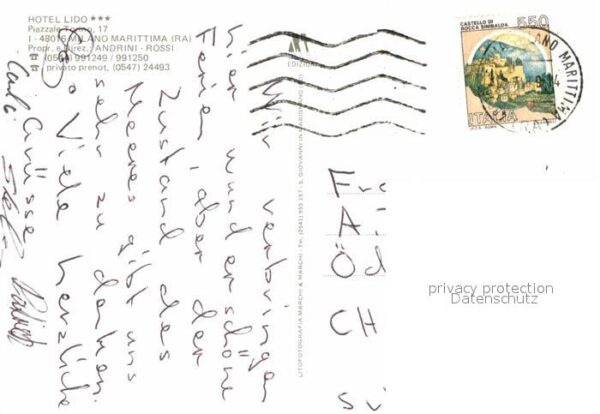 HOTEL LIDO ★★★
Piazzale Torino, 17
I - 48016 MILANO MARITTIMA (RA)
Propr. e Direz. ANDRINI - ROSSI
(0544) 991249 / 991250
privato prenot. (0547) 24493
EDIZIONI
Wir verbringen
hier wunderschöne
Ferien, aber der
Zustand des
Meeres gibt uns
sehr zu denken.
Viele herzliche
Grüsse
LITOFOTOGRAFIA MARCHI & MARCHI - Tel. (0541) 955 197 - S. GIOVANNI IN MARIGNANO (FO)
CASTELLO DI
ROCCA SINIBALDA
550
ITALIA
MILANO MARITTIMA
Fr
Ä
Öd
CH
privacy protection
Datenschutz